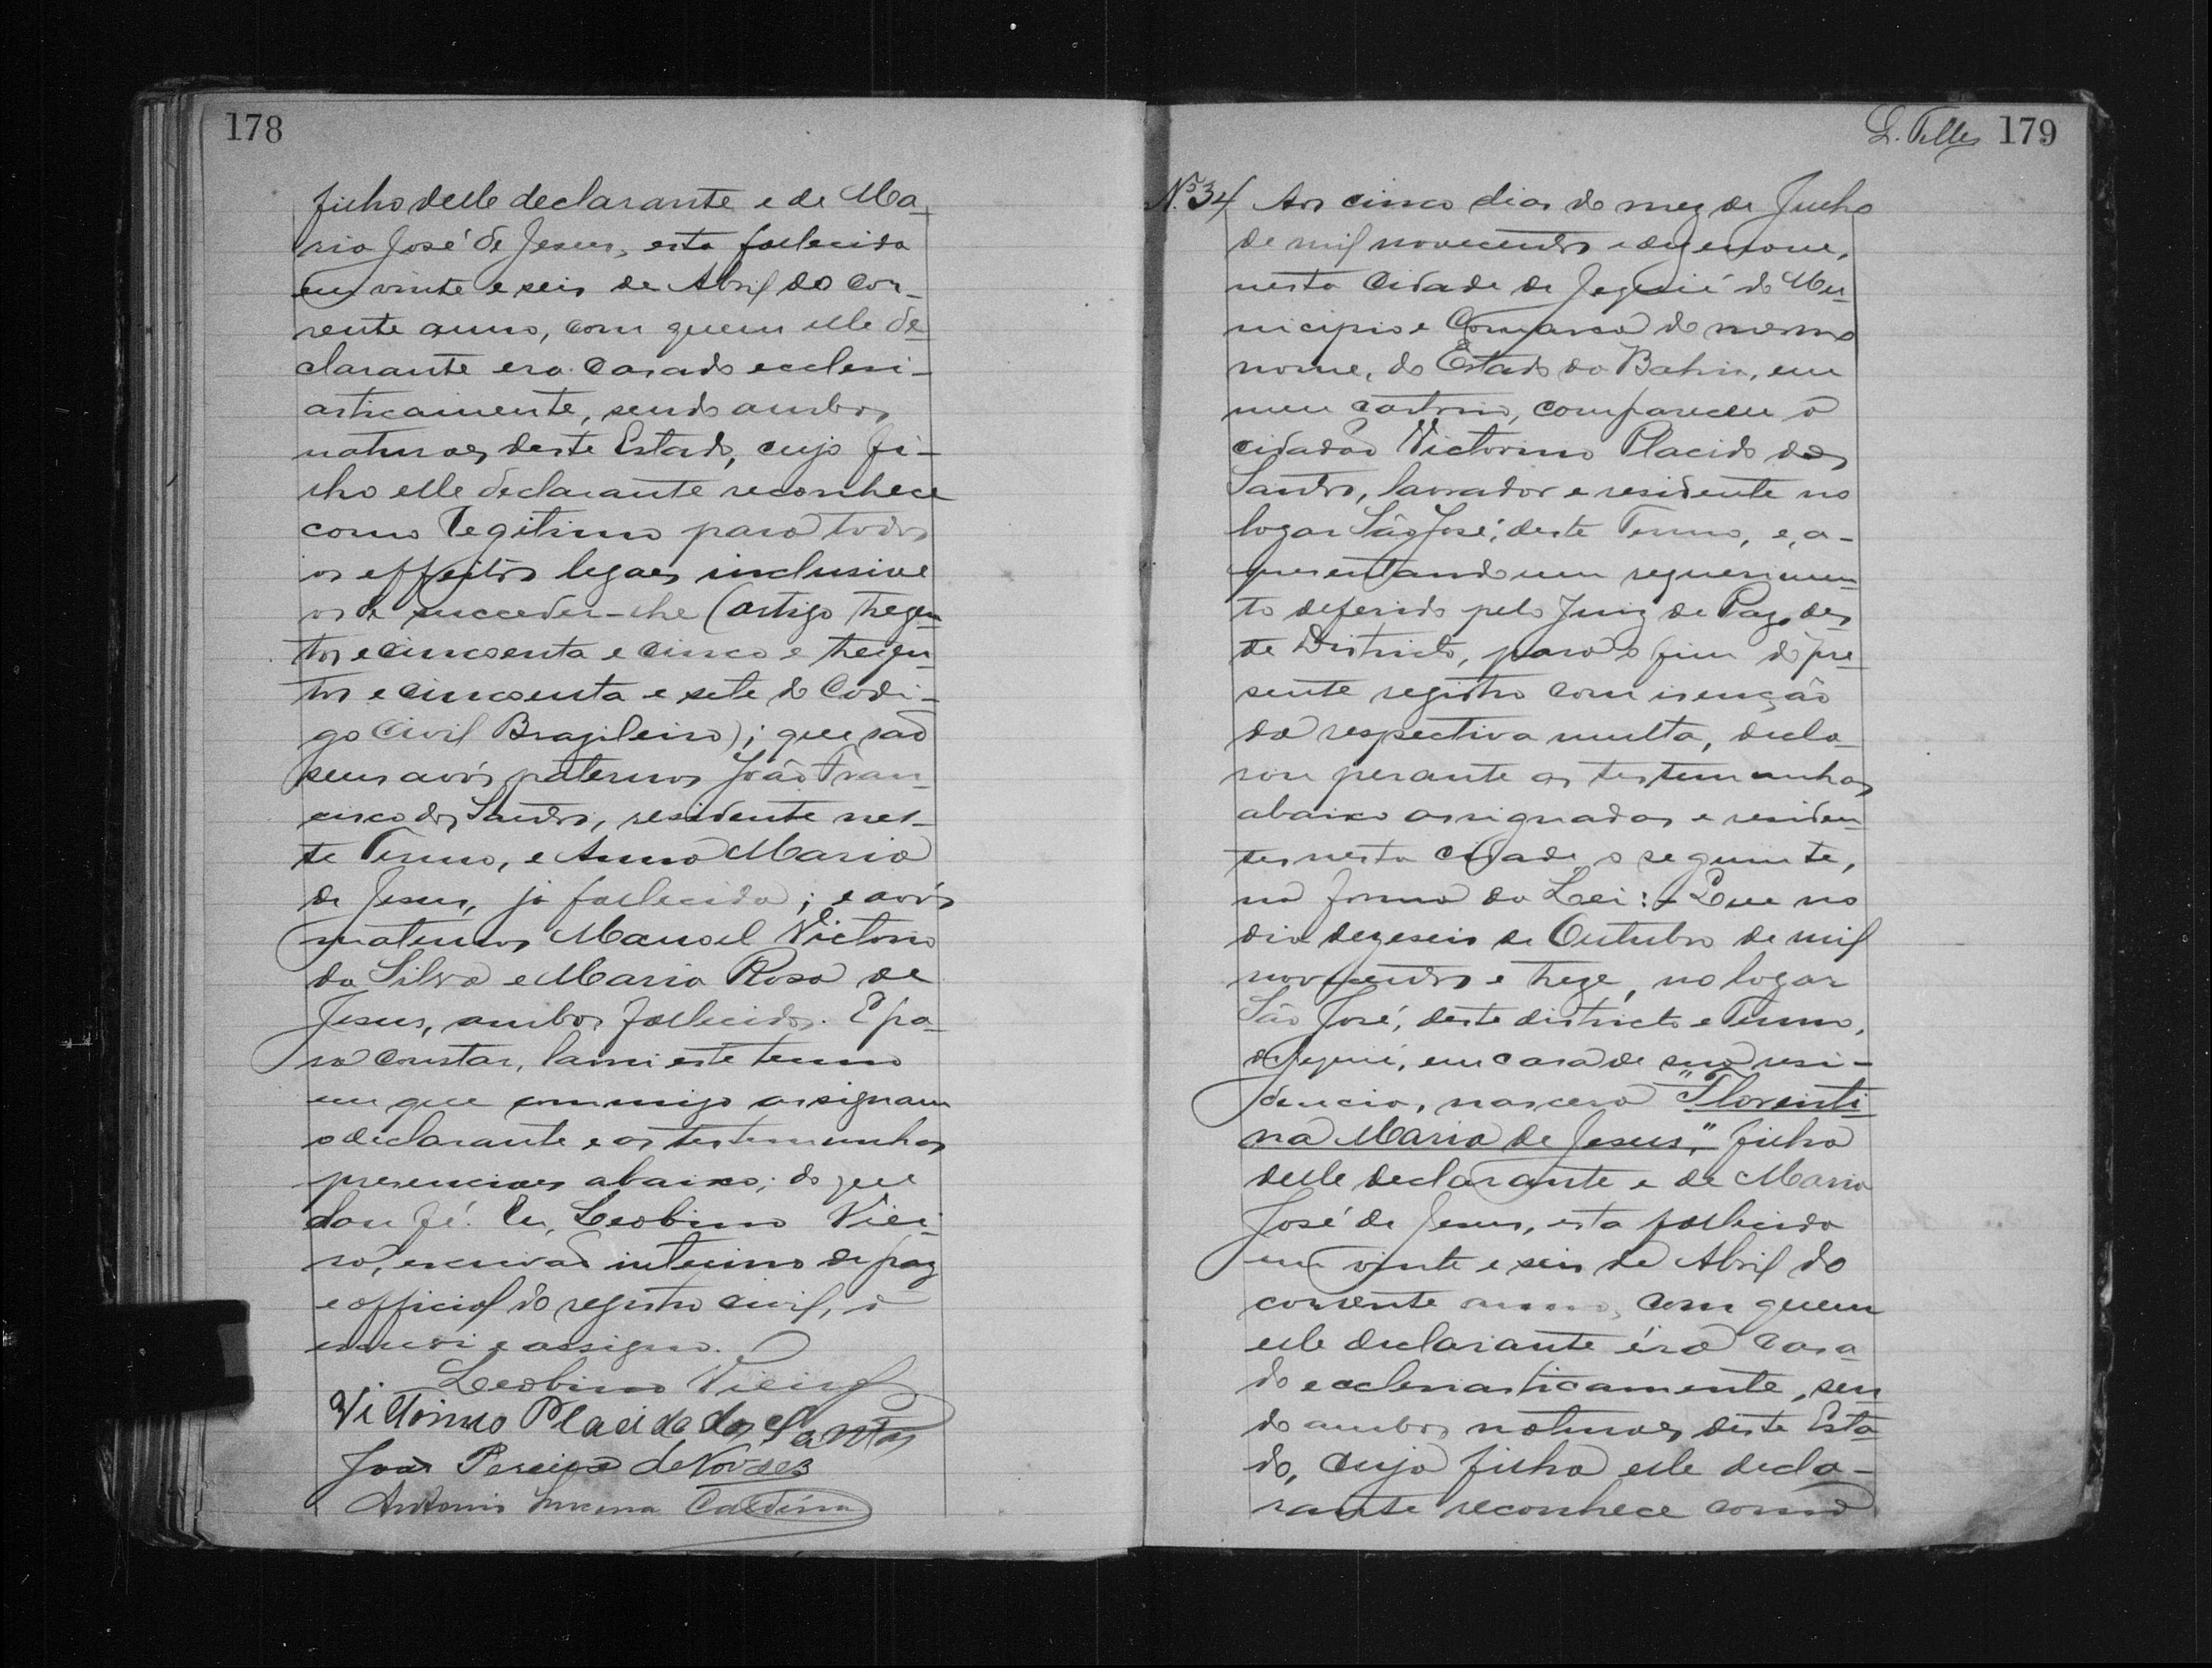 178
filho delle declarante e de Ma-
ria José de Jesus, esta fallecida
em vinte e seis de Abril do cor-
rente anno, com quem elle de-
clarante era casado ecclesi-
asticamente, sendo ambos
naturaes deste Estado, cujo fi-
lho elle declarante reconhece
como legitimo para todos
os effeitos legaes inclusive
os de succeder-lhe (artigo trezen-
tos e cincoenta e cinco e trezen-
tos e cincoenta e sete do Codi-
go Civil Brazileiro); que são
seus avós paternos João Fran-
cisco dos Santos, residente nes-
te Termo, e Anna Maria
de Jesus, já fallecida; e avós
maternos Manoel Victorio
da Silva e Maria Rosa de
Jesus, ambos fallecidos. E pa-
ra constar, lavrei este termo
em que commigo assignam
o declarante e as testemunhas
presenciaes abaixo; do que
dou fé. Eu, Leobino Viei-
ra, escrivão interino de paz
e official do registro civil, o
escrevi e assigno.
Leobino Vieira
Victorino Placido dos Santos
João Pereira de Novaes
Antonio Lucena Caldeira
L. Telles 179
Nº 34 Aos cinco dias do mez de Julho
de mil novecentos e dezenove,
nesta Cidade de Jequié do Mu-
nicipio e Comarca do mesmo
nome, do Estado da Bahia, em
meu cartorio, compareceu o
cidadão Victorino Placido dos
Santos, lavrador e residente no
logar São José, deste Termo, e, a-
presentando um requerimen-
to deferido pelo Juiz de Paz des-
te Districto, para o fim do pre-
sente registro com isenção
da respectiva multa, decla-
rou perante as testemunhas
abaixo assignadas e residen-
tes nesta cidade o seguinte,
na forma da Lei: - Que no
dia dezeseis de Outubro de mil
novecentos e treze, no logar
São José, deste districto e Termo,
de Jequié, em casa de sua resi-
dencia, nascera "Florenti-
na Maria de Jesus," filha
delle declarante e de Maria
José de Jesus, esta fallecida
em vinte e seis de Abril do
corrente anno, com quem
elle declarante éra casa-
do ecclesiasticamente, sen-
do ambos naturaes deste Esta-
do, cuja filha elle decla-
rante reconhece como